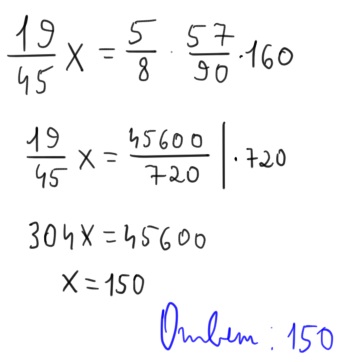 19/45 x = 5/8 · 57/90 · 160
19/45 x = 45600/720 | · 720
304x = 45600
x = 150
Ответ: 150